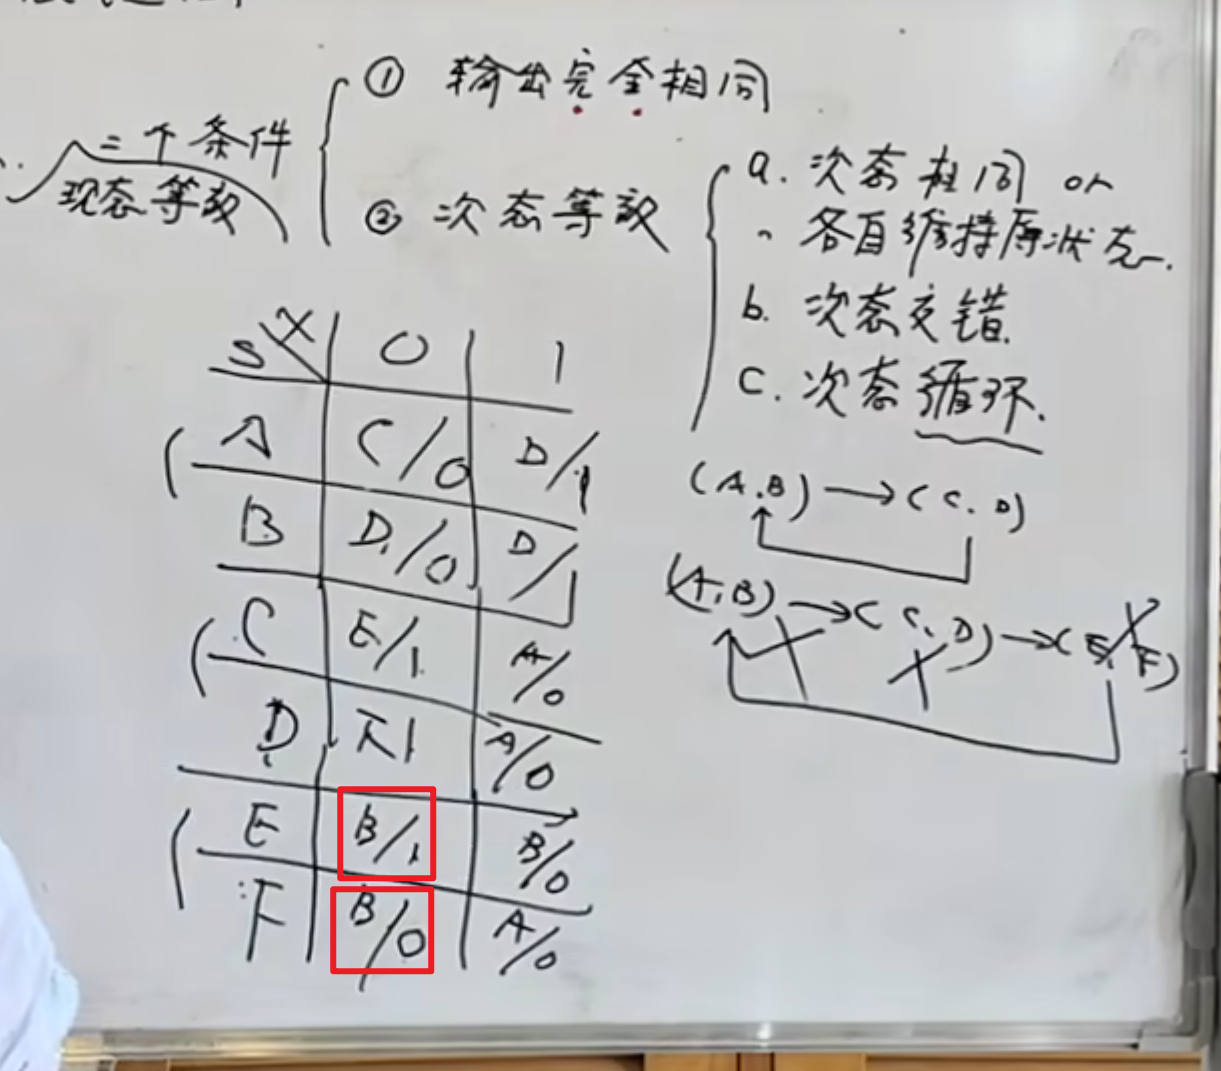 ① 输出完全相同
二个条件
现态等效
② 次态等效
a. 次态相同 or
各自维持原状态.
b. 次态交错.
c. 次态循环.
S X 0 1
A C/0 D/1
B D/0 D/1
C E/1 A/0
D F1 A/0
E B/1 B/0
F B/0 A/0
(A.B) → (C.D)
(A.B) → (C.D) → (E.F)